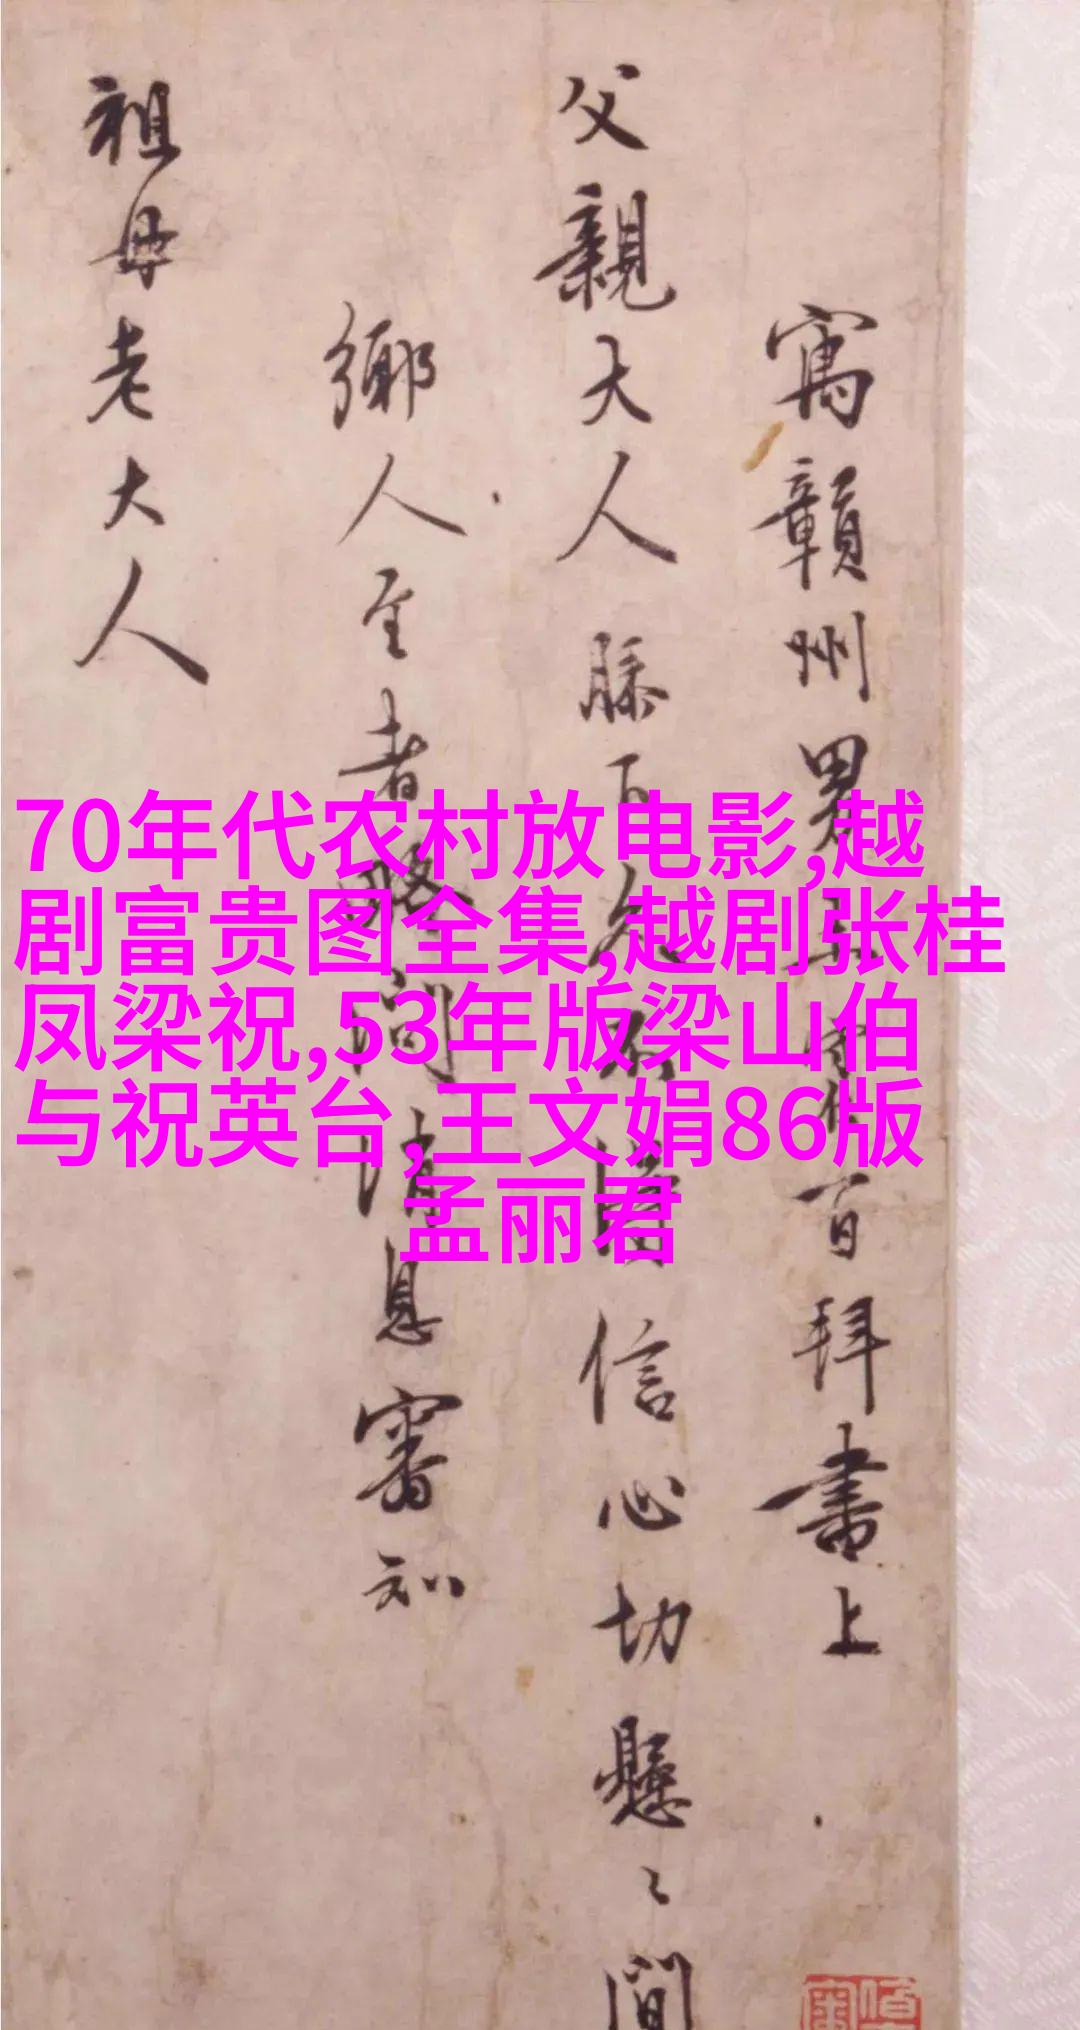 寓贛州男王守仁百拜書上
父親大人膝下久不得信心切懸〻間
鄉人至者略問消息審知
祖母老大人
70年代农村放电影,越
剧富贵图全集,越剧张桂
凤梁祝,53年版梁山伯
与祝英台,王文娟86版
孟丽君